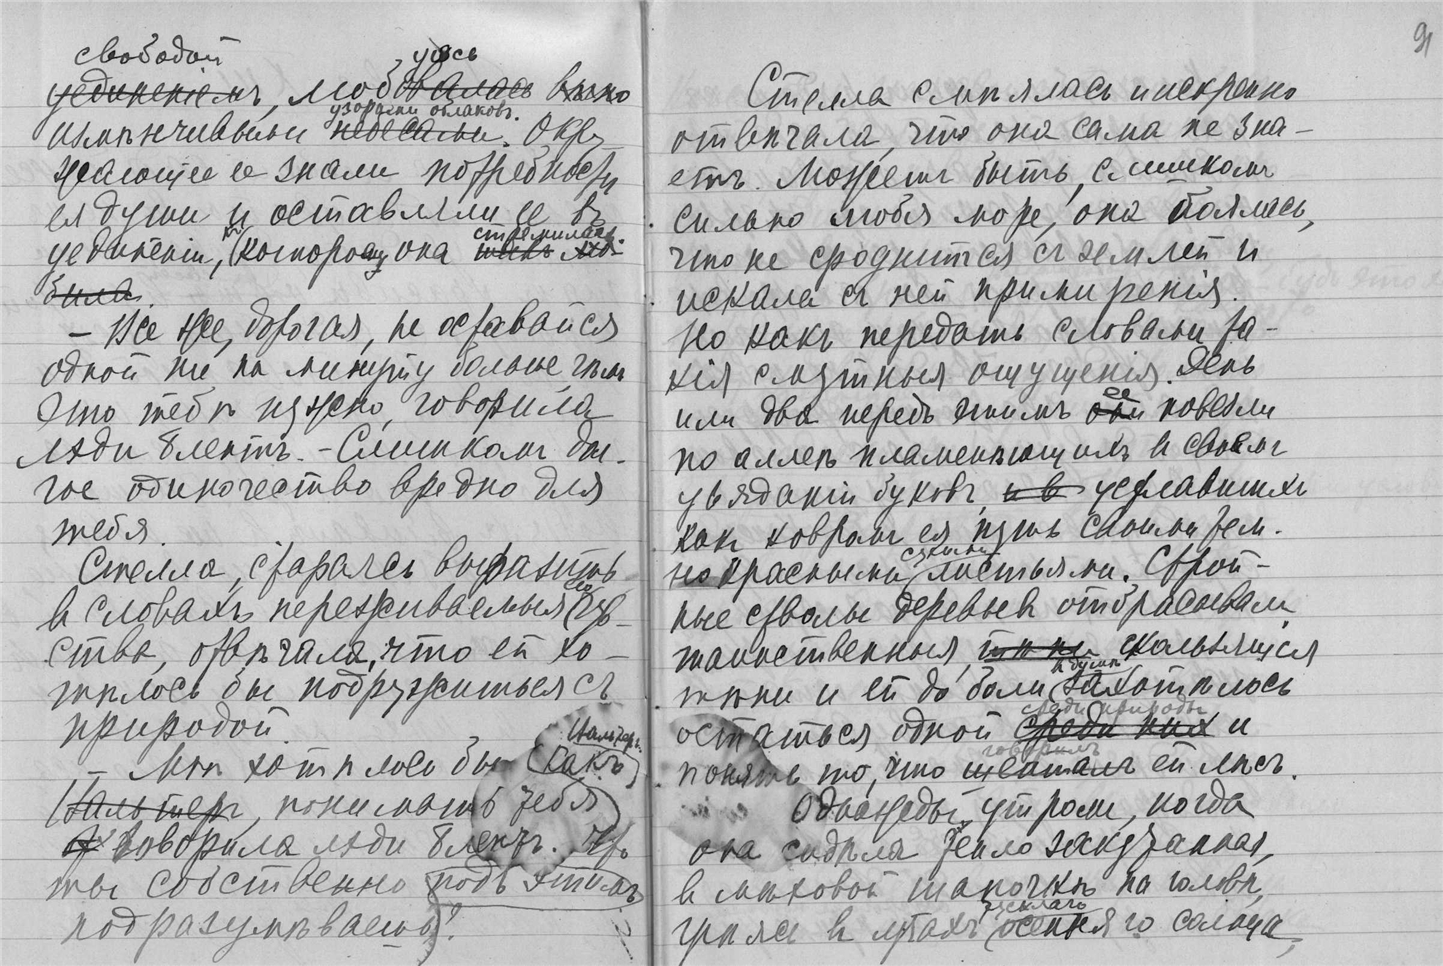 свободой уясь
уединеніемъ, любовалась вѣчно
узорами облаковъ.
измѣнчивыми небесами. Окру-
жающіе ее знали потребности
ея души и оставляли ее въ
стремилась.
уединеніи, къ которому она такъ лю-
била.
— Все же, дорогая, не оставайся
одной ни на минуту больше чѣмъ
это тебѣ нужно, говорила
лэди Блентъ. – Слишкомъ дол-
гое одиночество вредно для
тебя.
Стелла, стараясь выразить
въ словахъ переживаемыя ею чув-
ства, отвѣчала, что ей хо-
тѣлось бы подружиться съ
природой.
Вальтеръ.
— Мнѣ хотѣлось бы какъ
Вальтеръ, понимать тебя
говорила лэди Блентъ. Что
ты собственно подъ этимъ
подразумѣваешь?
91
Стелла смѣялась и искренно
отвѣчала, что она сама не зна-
етъ. Можетъ быть, слишкомъ
сильно любя море, она боялась,
что не сроднится съ землей и
искала съ ней примиренія.
Но какъ передать словами та-
кія смутныя ощущенія. День
ее
или два передъ этимъ они повезли
по аллеѣ пламенѣющихъ въ своемъ
увяданіи буковъ, и в устлавшихъ
какъ ковромъ ея путь своими тем-
сухими
но красными листьями. Строй-
ные стволы деревьевъ отбрасывали
таинственныя, тѣни скользящія
тѣни и ей до боли захотѣлось
среди природы
остаться одной среди нихъ и
говоритъ
понять то, что шептала ей лѣсъ.
Однажды, утромъ, когда
она сидѣла тепло закутанная,
въ мѣховой шапочкѣ на головѣ,
грѣясь въ лучахъ осенняго солнца,